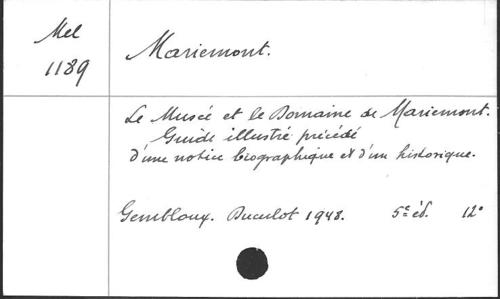 Mel
1189
Mariemont.
Le Musée et le Domaine de Mariemont.
Guide illustré précédé
d'une notice biographique et d'un historique.
Gembloux. Duculot 1948. 5e éd. 12°